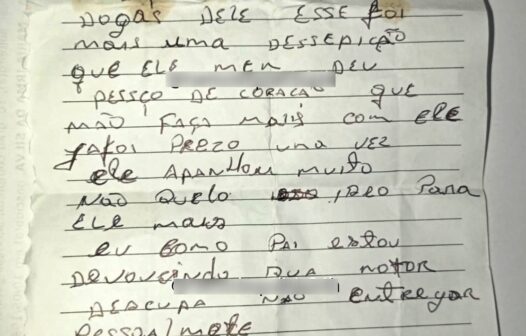 DOGAS DELE ESSE FOI
MAIS UMA DESSEPIÇÃO
QUE ELE MEU DEU
PESSÇO DE CORAÇÃO QUE
MÃO FAÇA MAIS COM ELE
JAFOI PREZO UMA VEZ
ELE APANHOU MUITO
NÃO QUELO IDEO PARA
ELE MAIS
EU COMO PAI ESTOU
DEVOUCINDO SUA MOTOR
DEACUPA NÃO ENTREGAR
PESSOALMETE